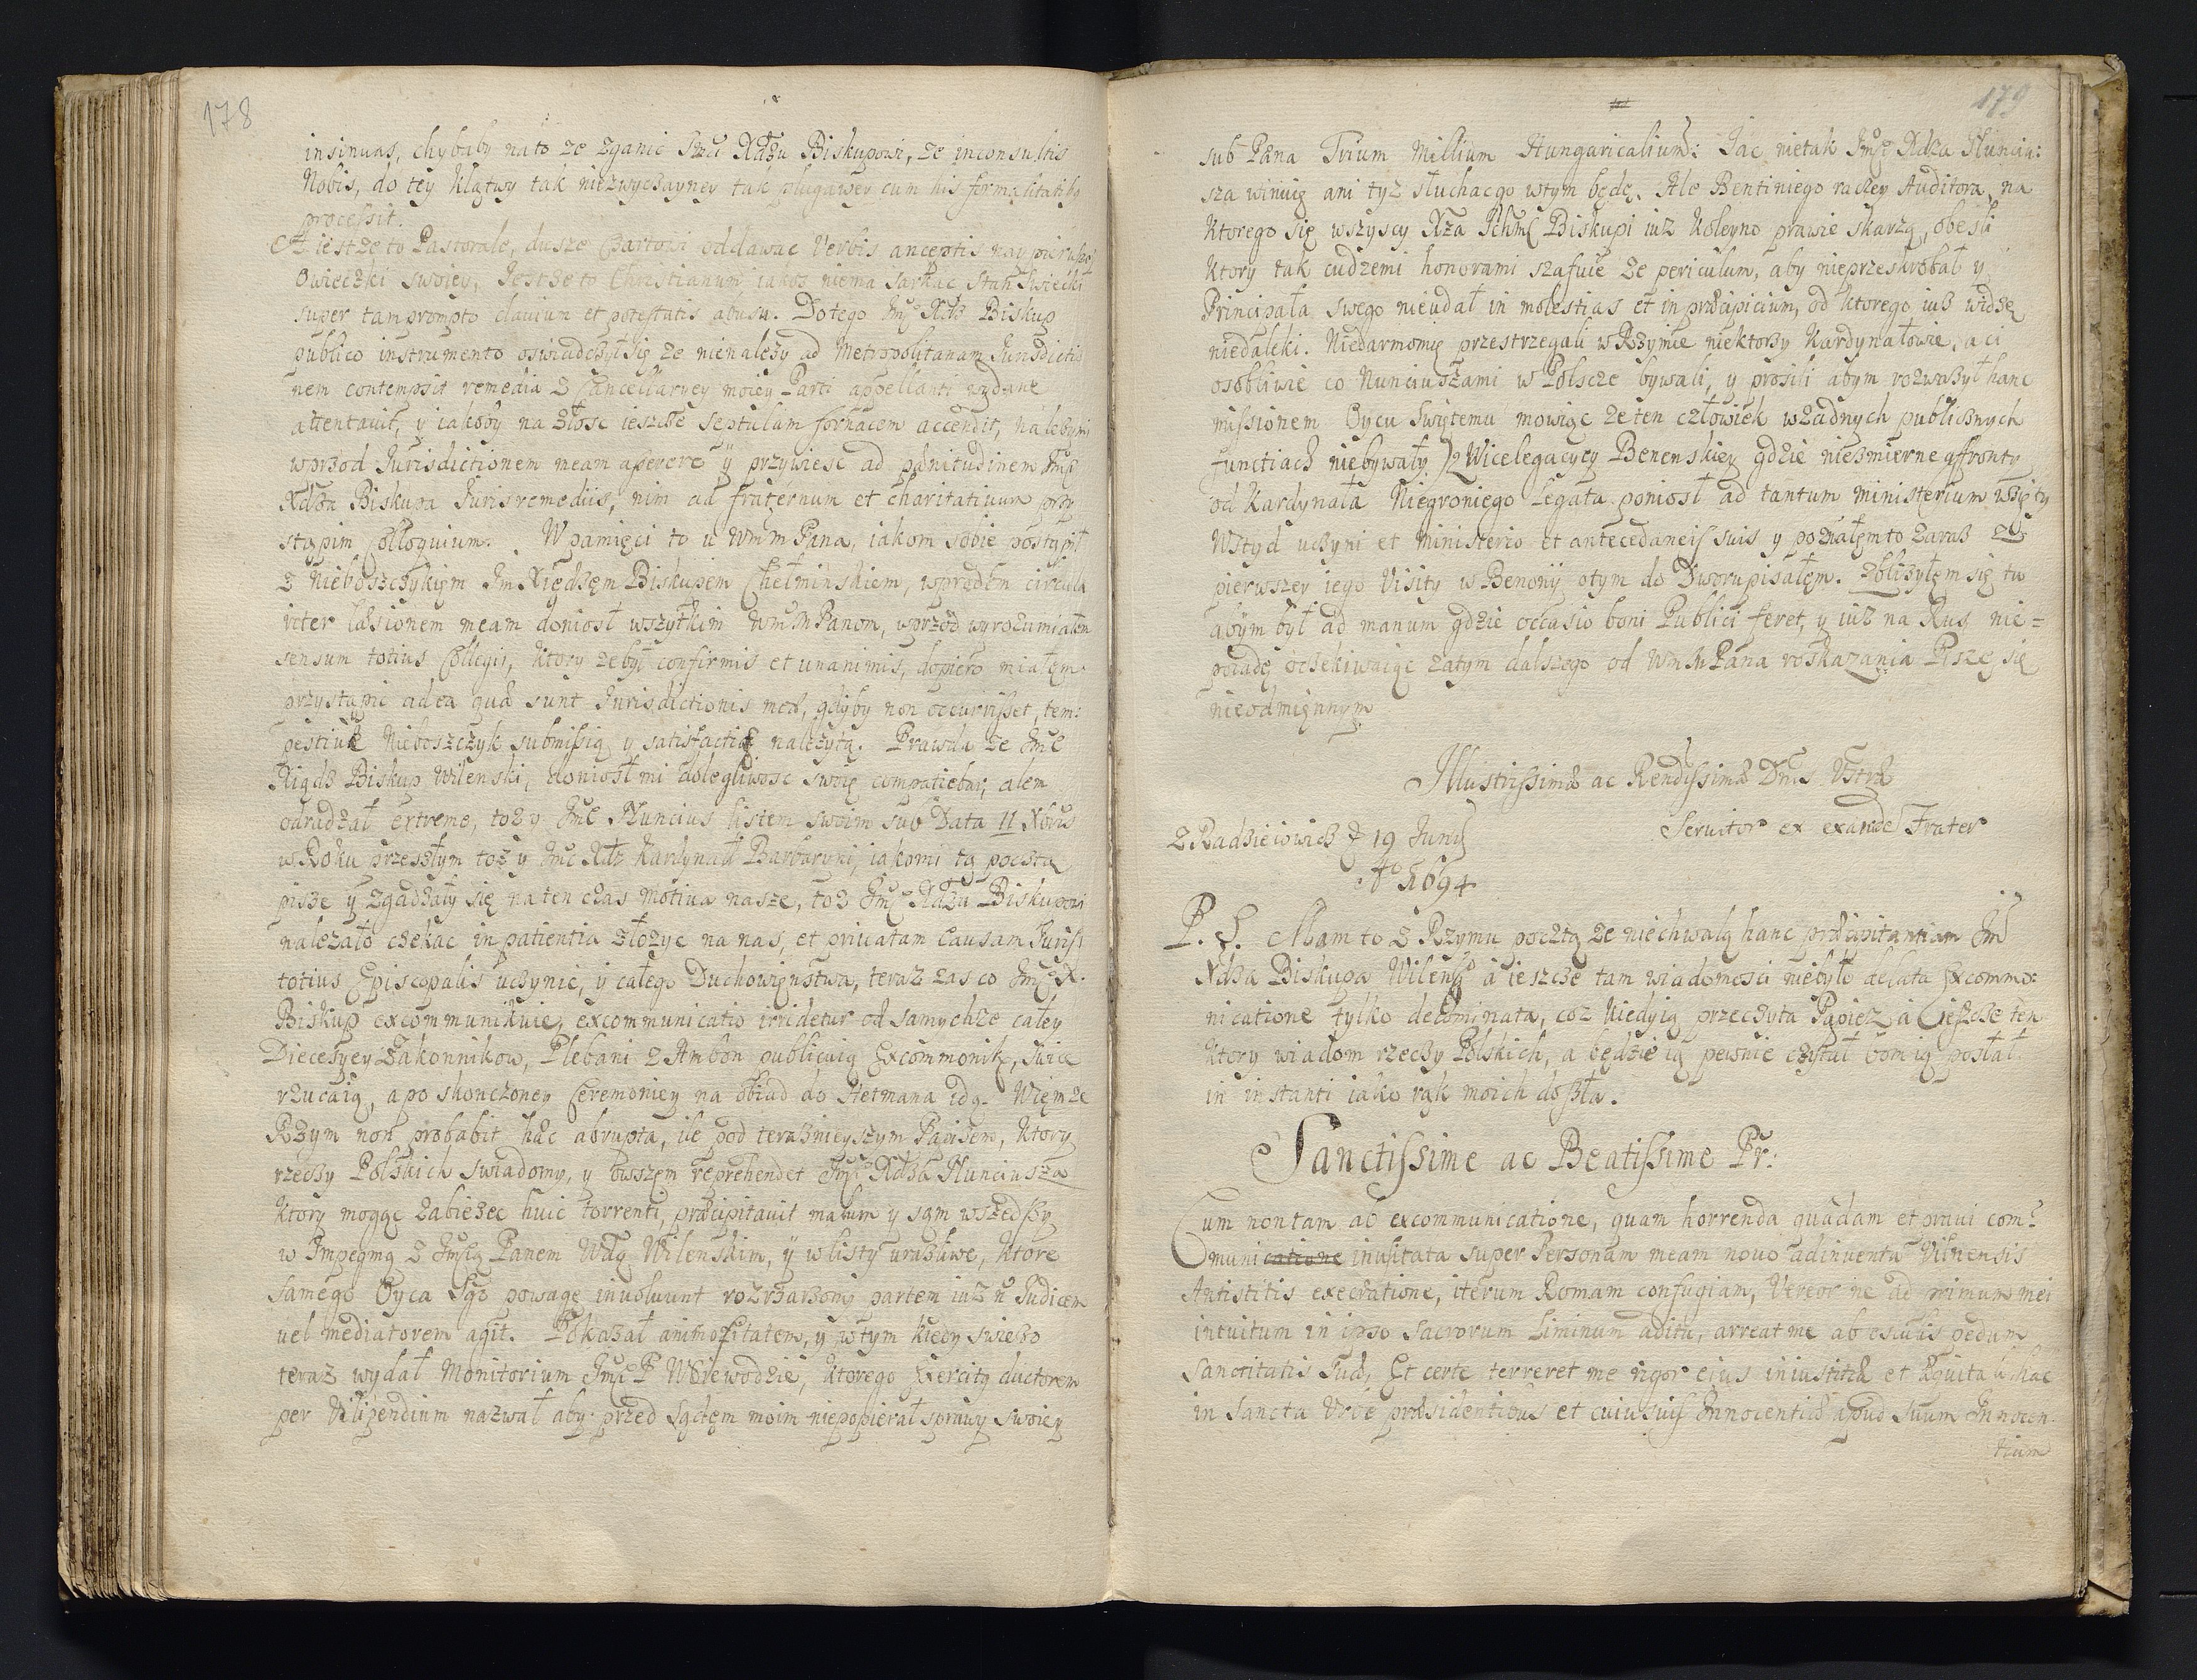 178
insinuas, chybaby nato ze zganic Jmci Xdzu Biskupowi, ze inconsultis
Nobis, do tey klątwy tak niezwyczayney tak plugawey cum his formalitatibg
processit.
A iestze to Pastorale, dusze Czartowi oddawac Verbis anceptis
Owieczki swoiey, Jestze to Christianum iakoz niema sarkac Stan Swiecki
super tam prompto clavium et potestatis abusu. Dotego Jmc Xdz Biskup
publico instrumento oswiadczył się ze nienalezy ad Metropolitanam Jurisdictio
nem contempsit remedia z Cancellaryey moiey Parti appellanti wydane
attentavit, y iakoby na złosc ieszcze septulum fornacem accendit, nalezy mi
wprzod Jurisdictionem meam asserere y przywiesc ad pænitudinem Jmc
Xdza Biskupa Juris remediis, nim ad fraternum et charitativum przy
stąpim Colloquium. W pamięci to u WmmPana, iakom sobie postąpił
z Nieboszczykiem Jm Xiędzem Biskupem Chełminskiem, wprzodem circula
riter læsionem meam doniosł wszytkim WmM Panom, wprzod wyrozumiałem
sensum totius Collegij, ktory zebył confirmis et unanimis, dopiero miałem
przystąpic ad ea quæ sunt Jurisdictionis meæ, gdyby non occurrisset, tem:
pestive Nieboszczyk submissią y satisfactią nalezytą. Prawda ze Jmc
Xiądz Biskup Wilenski, doniosł mi dolegliwosc swoię compatiebar, alem
odradzał extreme, toz y Jmc Nuncius listem swoim sub Data 11 Xbris
w Roku przeszłym toz y Jmc Xdz Kardynał Barbaryni, iakomi tą pocztą
pisze y zgadzały się na ten czas motiva nasze, toz Jmc Xdzu Biskupowi
nalezało czekac in patientia złozyc na nas, et privatam causam Juris
totius Episcopalis uczynic, y całego Duchowienstwa, teraz zas co Jmc X.
Biskup excommunikuie, excommunicatio irridetur od samychze całey
Diecezyey Zakonnikow, Plebani z Ambon publicuią Excommonikę, swice
rzucaią, a po skonczoney Ceremoniey na obiad do Hetmana idą. Wiem ze
Rzym non probabit hæc abrupta, ile pod teraznieyszym Papiezem, ktory
rzeczy Polskich swiadomy, y owszem reprehendet Jmc Xdza Nunciusza
ktory mogąc zabiezec huic torrenti, præcipitavit malum y sam wszedszy
w Impegmą z Jmcią Panem Wdą Wilenskim, y w listy urazliwe, ktore
samego Oyca Sgo powagę involvunt rozrzarzony partem iuz n Judicem
vel mediatorem agit. Pokazał animositatem, y wtym kiedy swiezo
teraz wydał Monitorium Jmc P Woiewodzie, ktorego Exercitg ductorem
per Vilipendium nazwał aby przed Sądem moim niepopierał sprawy swoiey
179
sub Pæna Trium Millium Hungaricalium: Jac nietak Jmc Xdza Nunciu:
sza winuię ani tyz słuchacgo wtym będę. Ale Bentiniego raczey Auditora, na
ktorego się wszyscy Xza Ichmc Biskupi iuz koleyno prawie skarzą, obesli
ktory tak cudzemi honorami szafuie ze periculum, aby nieprzeskrobał y
Principała swego nieudał in molestias et in præcipicium, od ktorego iuz widzę
niedaleki. Niedarmomię przestrzegali w Rzymie niektorzy Kardynałowie, a ci
osobliwie co Nunciuszami w Polscze bywali, y prosili abym rozwazył hanc
missionem Oycu Swiętemu mowiąc ze ten człowiek wzadnych publicznych
functiach niebywały z Wicelegacyey Benenskiey gdzie niezmierne affronty
od Kardynała Niegroniego Legata poniosł ad tantum ministerium wzięty
Wstyd uczyni et Ministerio et antecedaneis suis y poznałem to zaraz z
pierwszey iego Visity w Benonij otym do Dworu pisałem. Zblizyłem się tu
abym był ad manum gdzie occasio boni Publici feret, y iuz na Rus nie=
poiadę oczekiwaiąc zatym dalszego od WmMPana roskazania Piszę się
nieodmiennym
Illustrissimæ ac Rendissimæ Dnis Vstræ
Servitor ex Frater
z Radzieiowicz D 19 Junij
Ao 1694
P. S. Mam to z Rzymu pocztą ze niechwalą hanc præcipitantiam Jm
Xdza Biskupa Wilengo a ieszcze tam wiadomosci niebyło de lata Excommo:
nicatione tylko de cominata, coz kiedyią przeczyta Papiez, a ieszcze ten
ktory wiadom rzeczy Polskich, a będzie ią pewnie czytał bom ią posłał
in instanti iako rąk moich doszła.
Sanctissime ac Beatissime Pr:
Cum non tam ab excommunicatione, quam horrenda quadam et pravi com:
municatione inusitata super Personam meam novo adinventu Vilnensis
Antistitis execratione, iterum Romam confugiam, Vereor ne ad primum mei
intuitum in ipso sacrorum Liminum aditu, arceat me ab osculis pedum
Sanctitatis Suæ, Et certe terreret me rigor eius iniustitiæ et Æquitas hac
in Sancta Urbe præsidentibus et cuiusvis Innocentiæ apud suum Innocen
tium